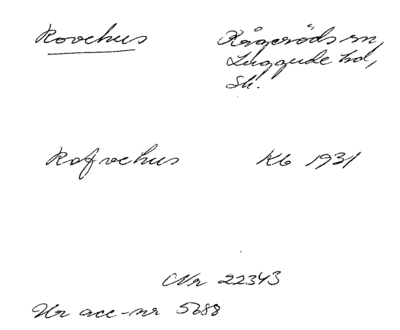 Rovehus Kågeröds sn,
Luggude hd,
Sk.
Rofvehus Kb 1931
Nr 22343
Ur acc-nr 5688